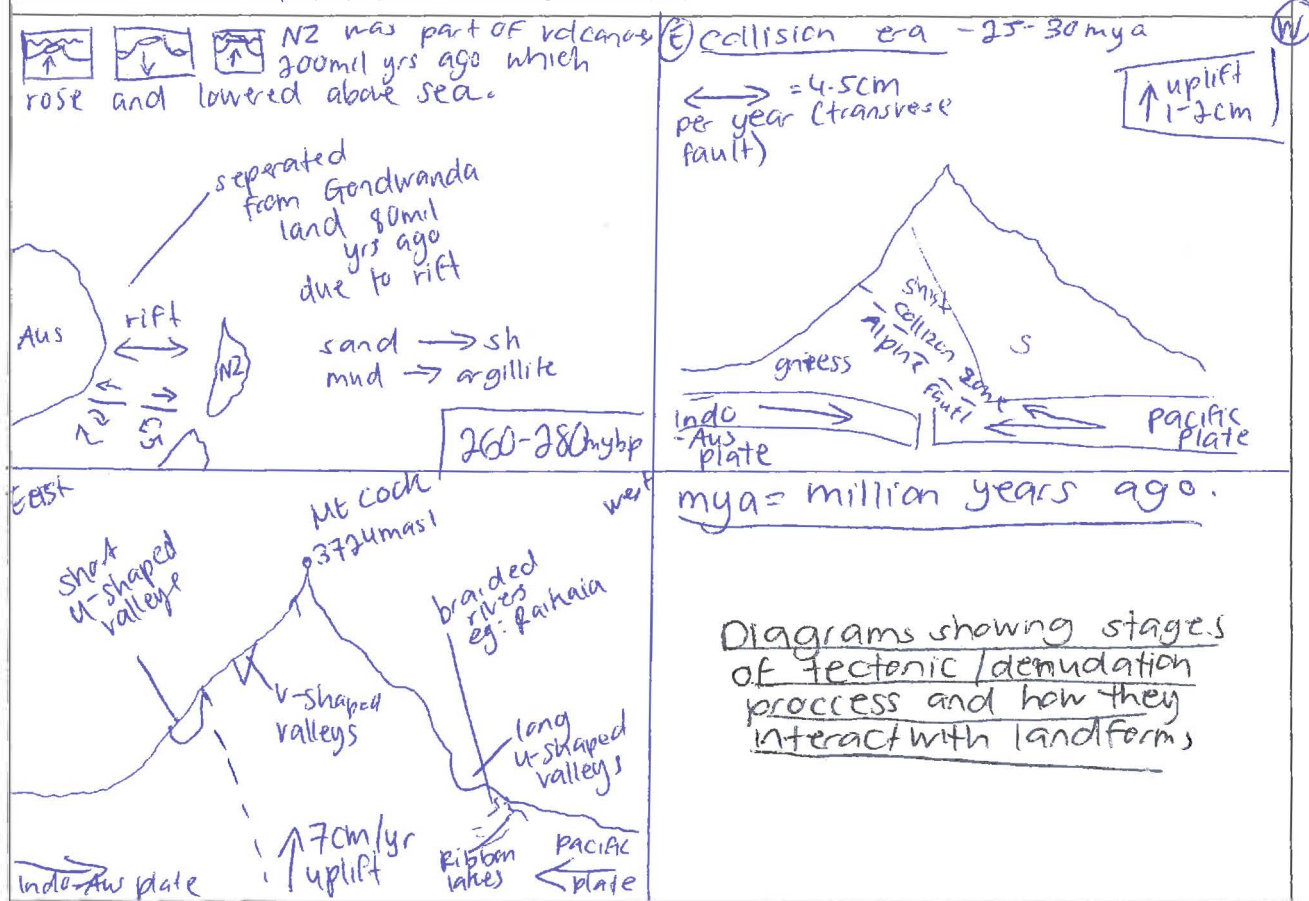 NZ was part of volcanoes
200mil yrs ago which
rose and lowered above sea.
seperated
from Gondwanda
land 80mil
yrs ago
due to rift
Aus
rift
NZ
sand → sh
mud → argillite
260-280mybp
(E) collision era - 25-30mya
(W)
= 4-5cm
per year (transvese
fault)
↑ uplift
1-2cm
collizon zone
Alpine Fault
S
gneess
Indo
-Aus
plate
pacific
plate
East
west
Mt Cook
3724masl
short
u-shaped
valleys
v-shaped
valleys
braided
rivers
eg: Raikaia
long
u-shaped
valleys
7cm/yr
uplift
Ribbon
lakes
pacific
plate
Indo-Aus plate
mya= million years ago.
Diagrams showing stages
of tectonic/denudation
proccess and how they
interact with landforms